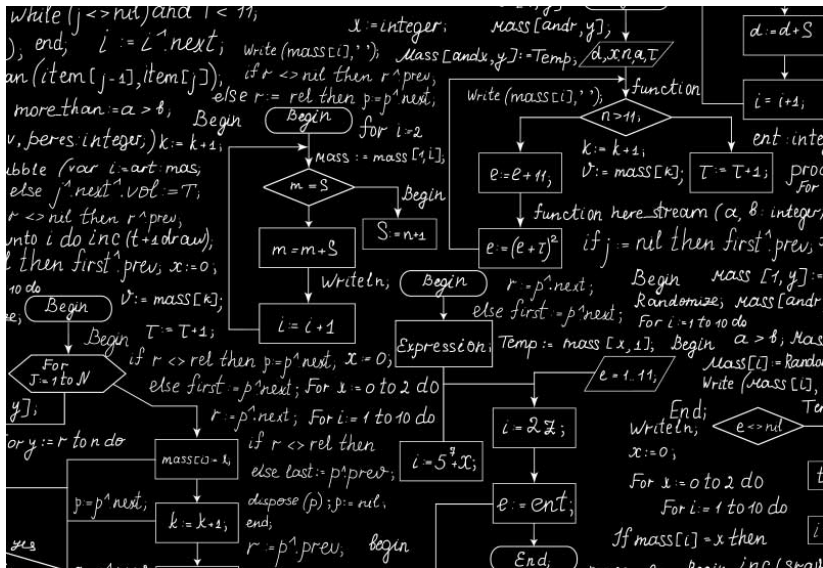 while (j <> nil) and T < 11;
); end; i := i^.next;
an (item [j-1], item [j]);
more_than := a > b;
v, peres: integer;) k := k+1;
ubble (var i:=art: mas;
else j^.next^.vol := T;
r <> nil then r^prev,
unto i do inc (t+1 draw);
l then first^.prev; x := 0;
10 do
Begin
v := mass [k];
Begin
T := T+1;
For
J := 1 to N
y];
For y := r to n do
yes
x := integer;
Write (mass [i], ' ');
if r <> nil then r^prev,
else r := rel then p := p^.next,
Begin
Begin
for i := 2
mass := mass [1, i];
m = S
Begin
S := n+1
m = m + S
i := i + 1
Writeln;
Begin
if r <> rel then p := p^.next, x := 0;
else first := p^.next; For x := 0 to 2 do
r := p^.next; For i := 1 to 10 do
if r <> rel then
else last := p^prev;
mass [i] = 1,
p := p^.next;
k := k+1;
dispose (p); p := nil,
end;
r := p^.prev; begin
mass [andr, y];
Mass [andx, y] := Temp;
d, x, n, a, τ
Write (mass [i], ' ');
function
n > 11;
k := k+1;
v := mass [k];
e := e + 11;
T := T+1;
e := (e + τ)²
function here_stream (a, b: integer)
if j := nil then first^.prev;
d := d + S
i = i+1;
ent: integ
proc
For
r := p^.next;
else first := p^.next;
Expression;
Temp := mass [x, 1];
e = 1..11;
i := 2z;
i := 5⁷ + x;
e := ent;
End;
Begin Mass [1, y] :=
Randomize; mass [andr
For i := 1 to 10 do
Begin a > b; Mas
Mass [i] := Random
Write (mass [i],
End;
Writeln;
e <> nil
x := 0;
For x := 0 to 2 do
For i := 1 to 10 do
If mass [i] = x then